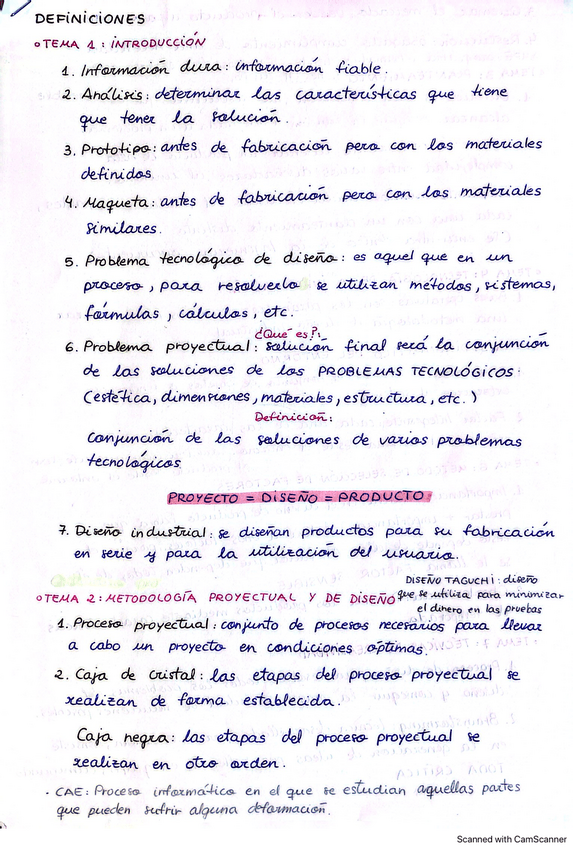 DEFINICIONES
TEMA 1: INTRODUCCIÓN
1. Información dura: información fiable.
2. Análisis: determinar las características que tiene
que tener la solución.
3. Prototipo: antes de fabricación pero con los materiales
definidos
4. Maqueta: antes de fabricación pero con los materiales
similares.
5. Problema tecnológico de diseño: es aquel que en un
proceso, para resolverlo se utilizan métodos, sistemas,
fórmulas, cálculos, etc.
¿Qué es?:
6. Problema proyectual: solución final será la conjunción
de las soluciones de los PROBLEMAS TECNOLÓGICOS:
(estética, dimensiones, materiales, estructura, etc.)
Definición:
conjunción de las soluciones de varios problemas
tecnológicos
PROYECTO = DISEÑO = PRODUCTO
7. Diseño industrial: se diseñan productos para su fabricación
en serie y para la utilización del usuario.
DISEÑO TAGUCHI: diseño
que se utiliza para minimizar
el dinero en las pruebas
TEMA 2: METODOLOGÍA PROYECTUAL Y DE DISEÑO
1. Proceso proyectual: conjunto de procesos necesarios para llevar
a cabo un proyecto en condiciones óptimas.
2. Caja de cristal: las etapas del proceso proyectual se
realizan de forma establecida.
Caja negra: las etapas del proceso proyectual se
realizan en otro orden.
· CAE: Proceso informático en el que se estudian aquellas partes
que pueden sufrir alguna deformación.
Scanned with CamScanner